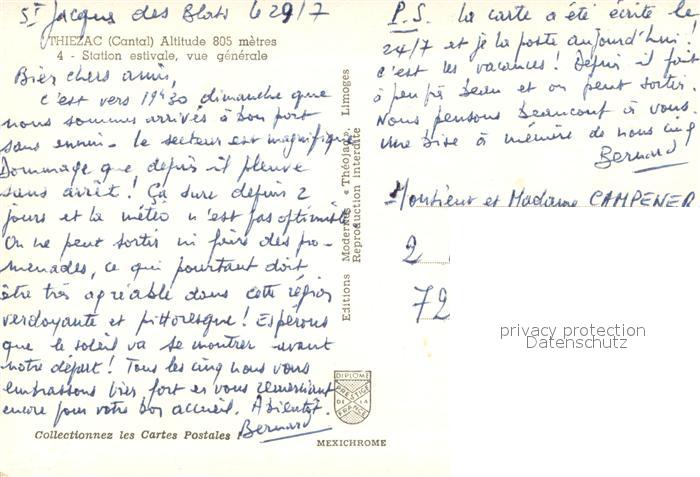 St Jacques des Blats le 29/7
THIEZAC (Cantal) Altitude 805 mètres
4 - Station estivale, vue générale
Bien chers amis,
c'est vers 19h30 dimanche que
nous sommes arrivés à bon port
sans ennui. le secteur est magnifique
Dommage que depuis il pleuve
sans arrêt! Ça dure depuis 2
jours et la météo n'est pas optimiste.
On ne peut sortir ni faire des pro-
menades, ce qui pourtant doit
être très agréable dans cette région
verdoyante et pittoresque! Espérons
que le soleil va se montrer avant
notre départ! Tous les cinq nous vous
embrassons bien fort et vous remerciant
encore pour votre bon accueil. A bientôt.
Bernard
Collectionnez les Cartes Postales !
Editions Modernes "Théojac", Limoges
Reproduction interdite
DIPLOME
PRESTIGE
DE LA
FRANCE
MEXICHROME
P.S. la carte a été écrite le
24/7 et je la poste aujourd'hui!
c'est les vacances! Depuis il fait
à peu près beau et on peut sortir.
Nous pensons beaucoup à vous.
Une bise à mémère de nous cinq
Bernard
Monsieur et Madame CAMPENER
2
72
privacy protection
Datenschutz